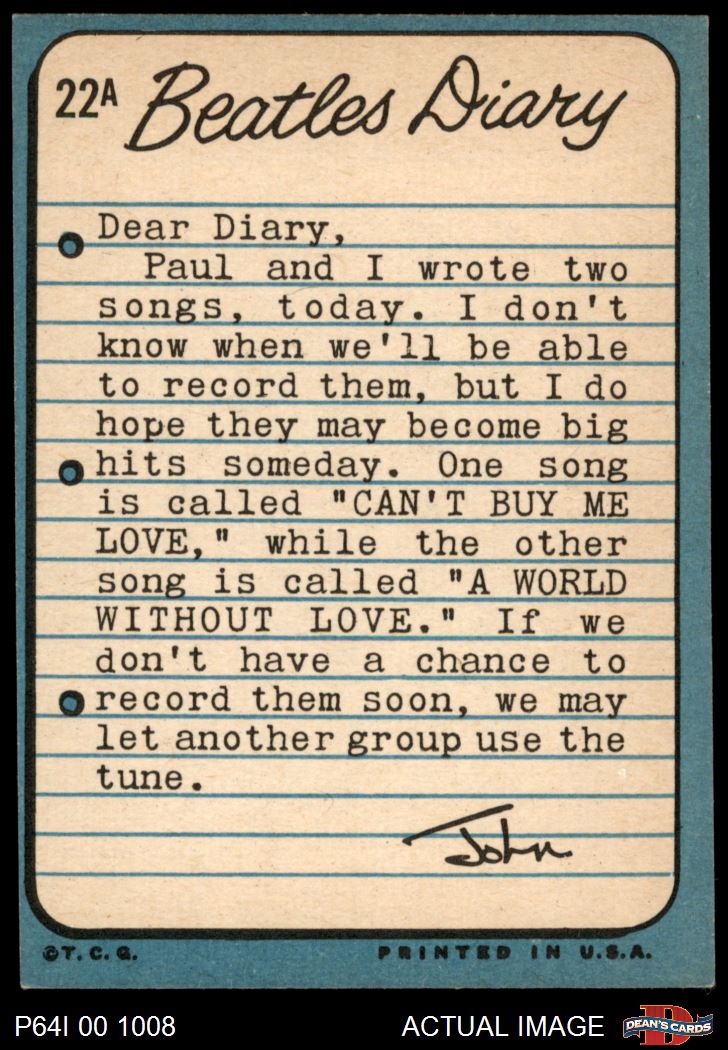 22A Beatles Diary
Dear Diary,
Paul and I wrote two
songs, today. I don't
know when we'll be able
to record them, but I do
hope they may become big
hits someday. One song
is called "CAN'T BUY ME
LOVE," while the other
song is called "A WORLD
WITHOUT LOVE." If we
don't have a chance to
record them soon, we may
let another group use the
tune.
John
©T.C.G. PRINTED IN U.S.A.
P64I 00 1008 ACTUAL IMAGE D DEAN'S CARDS